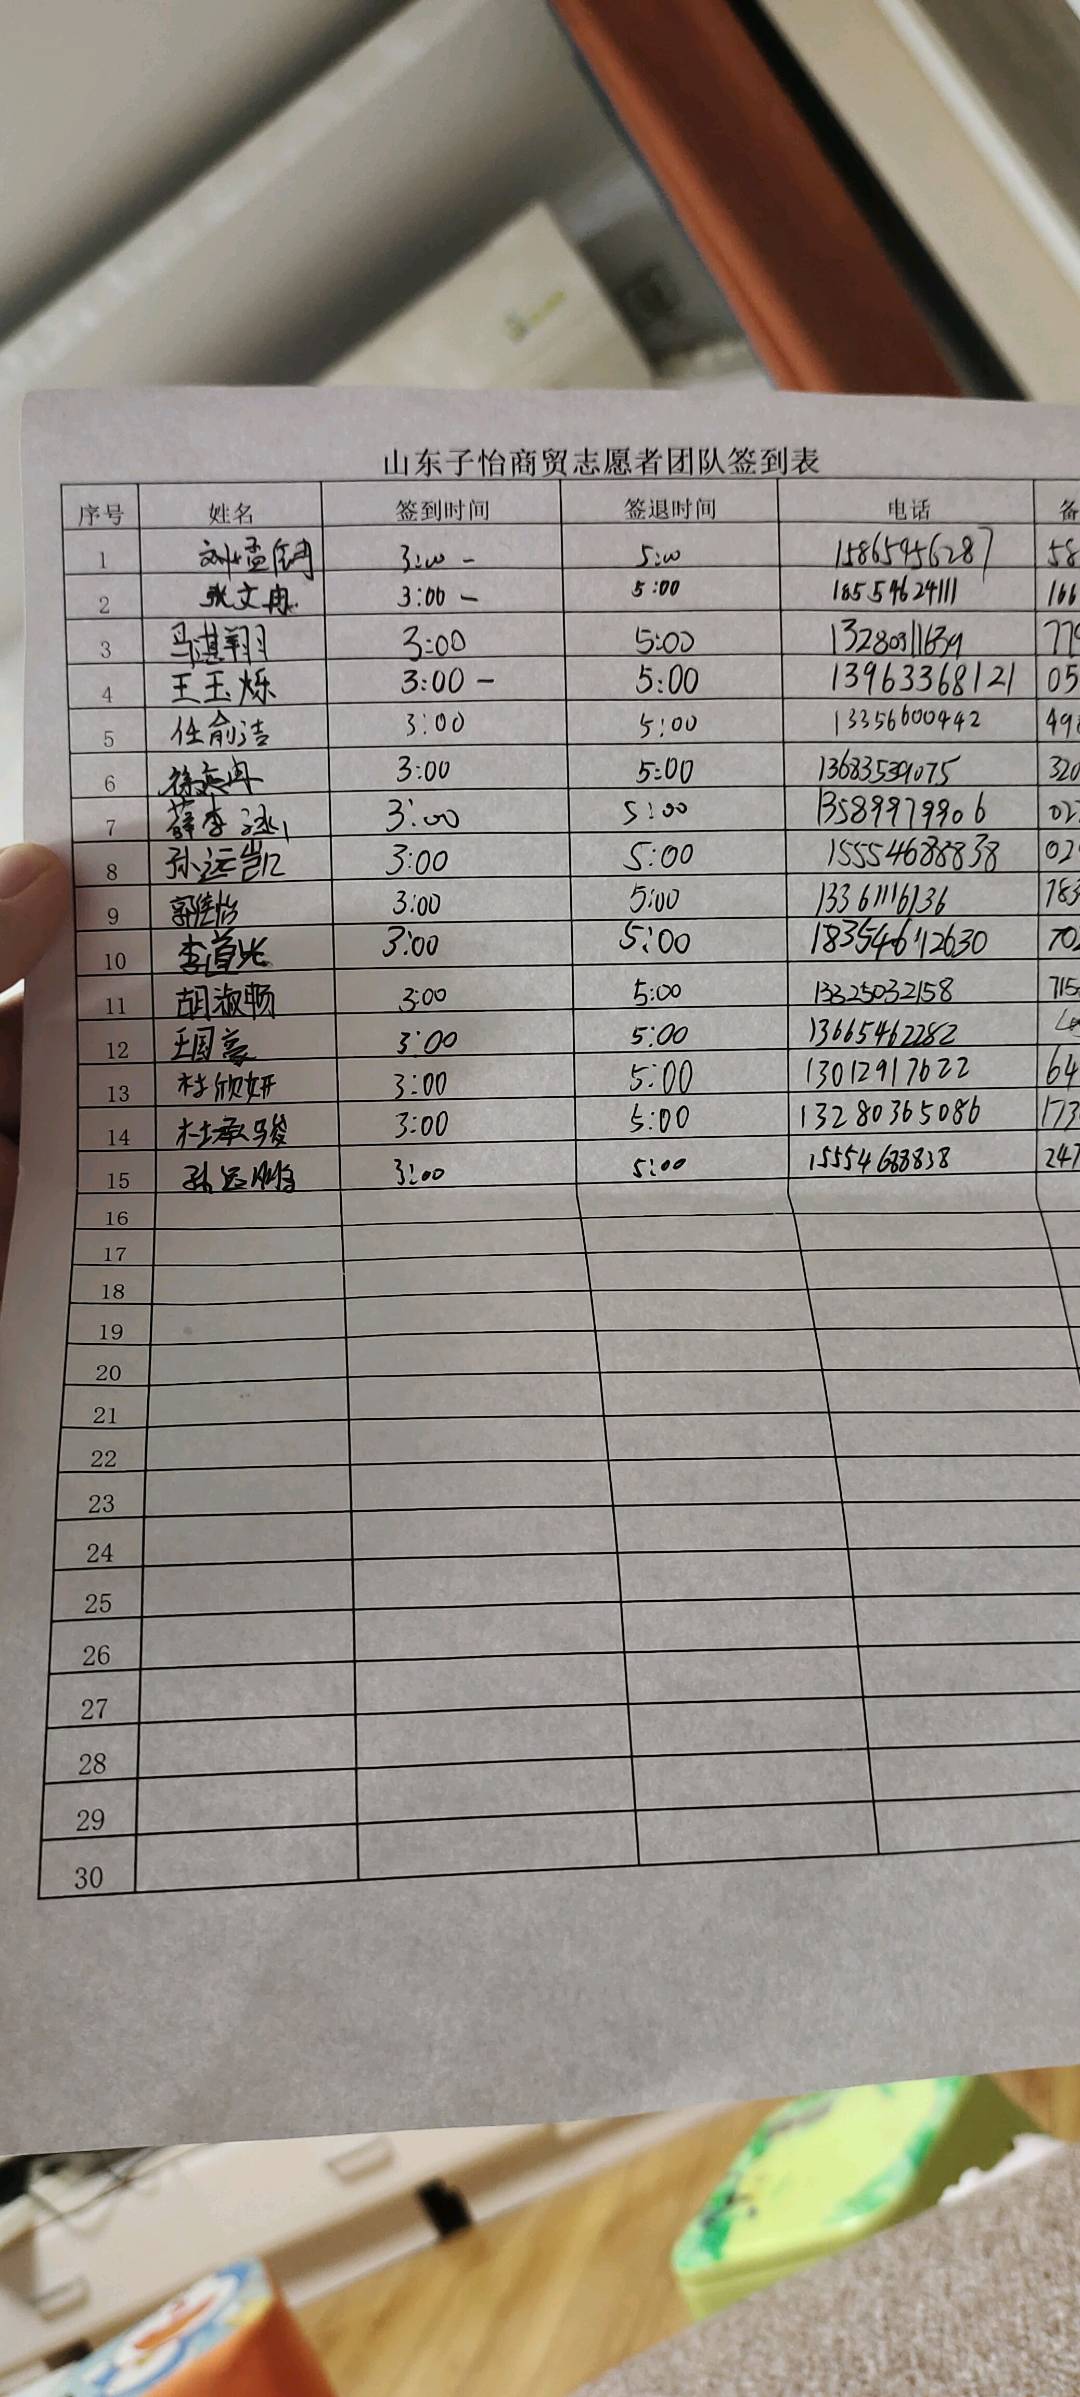 山东子怡商贸志愿者团队签到表
序号 姓名 签到时间 签退时间 电话 备
1 刘孟 3:00 - 5:00 15865956287 58
2 张文冉 3:00 - 5:00 18554624111 166
3 马淇翔 3:00 5:00 13280311639 779
4 王玉烁 3:00 - 5:00 13963368121 05
5 任俞洁 3:00 5:00 13356600442 49
6 徐冉 3:00 5:00 13683539075 320
7 薛李 3:00 5:00 13589979906 02
8 孙运凯 3:00 5:00 15554688838 02
9 郭佳怡 3:00 5:00 13361116136 783
10 李道兴 3:00 5:00 183546112630 70
11 胡淑畅 3:00 5:00 13325032158 715
12 王国豪 3:00 5:00 13665462282
13 杜欣妍 3:00 5:00 13012917622 64
14 杜承骏 3:00 5:00 13280365086 173
15 孙运鹏 3:00 5:00 15554688838 247
16
17
18
19
20
21
22
23
24
25
26
27
28
29
30